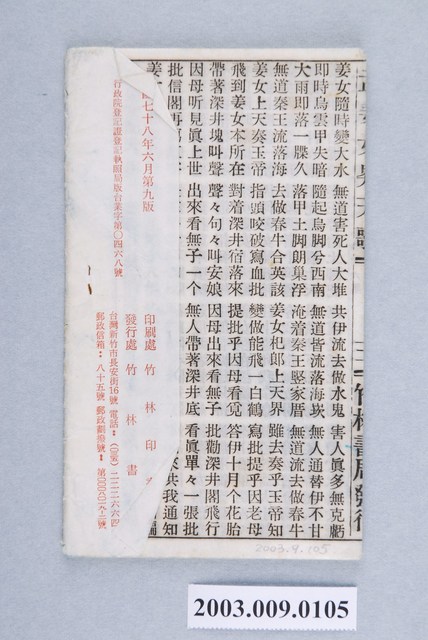 姜女隨時變大水 無道害死人大堆 共伊流去做水鬼 害人眞多無克虧
即時烏雲甲失暗 隨起烏脚兮西南 無道皆流落海崁 無人通替伊不甘
大雨即落一牒久 落甲土脚朗臬浮 淹着秦王竪家厝 無道流去做春牛
無道秦王流落海 去做春牛合英該 姜女犯郎上天界 雖去奏乎玉帝知
姜女上天奏玉帝 指頭咬破寫血批 變做能飛一白鶴 寫批提乎因老母
飛到姜女本所在 對着深井宿落來 提批乎因母看覓 答伊十月个花胎
帶著深井塊叫聲 聲々句々叫安娘 因母出來看無子 批勸深井閣飛行
因母听見眞上世 出來看無子一个 無人帶著深井底 看眞單々一張批
批信閣再
來共我通知
七十八年六月第九版
行政院登記證登記執照局版台業字第〇四六八號
印刷處 竹林印
發行處 竹林書
台灣新竹市長安街16號 電話：
郵政信箱：八十五號 郵政劃撥號：
竹林書局發行
2003.9.105
2003.009.0105